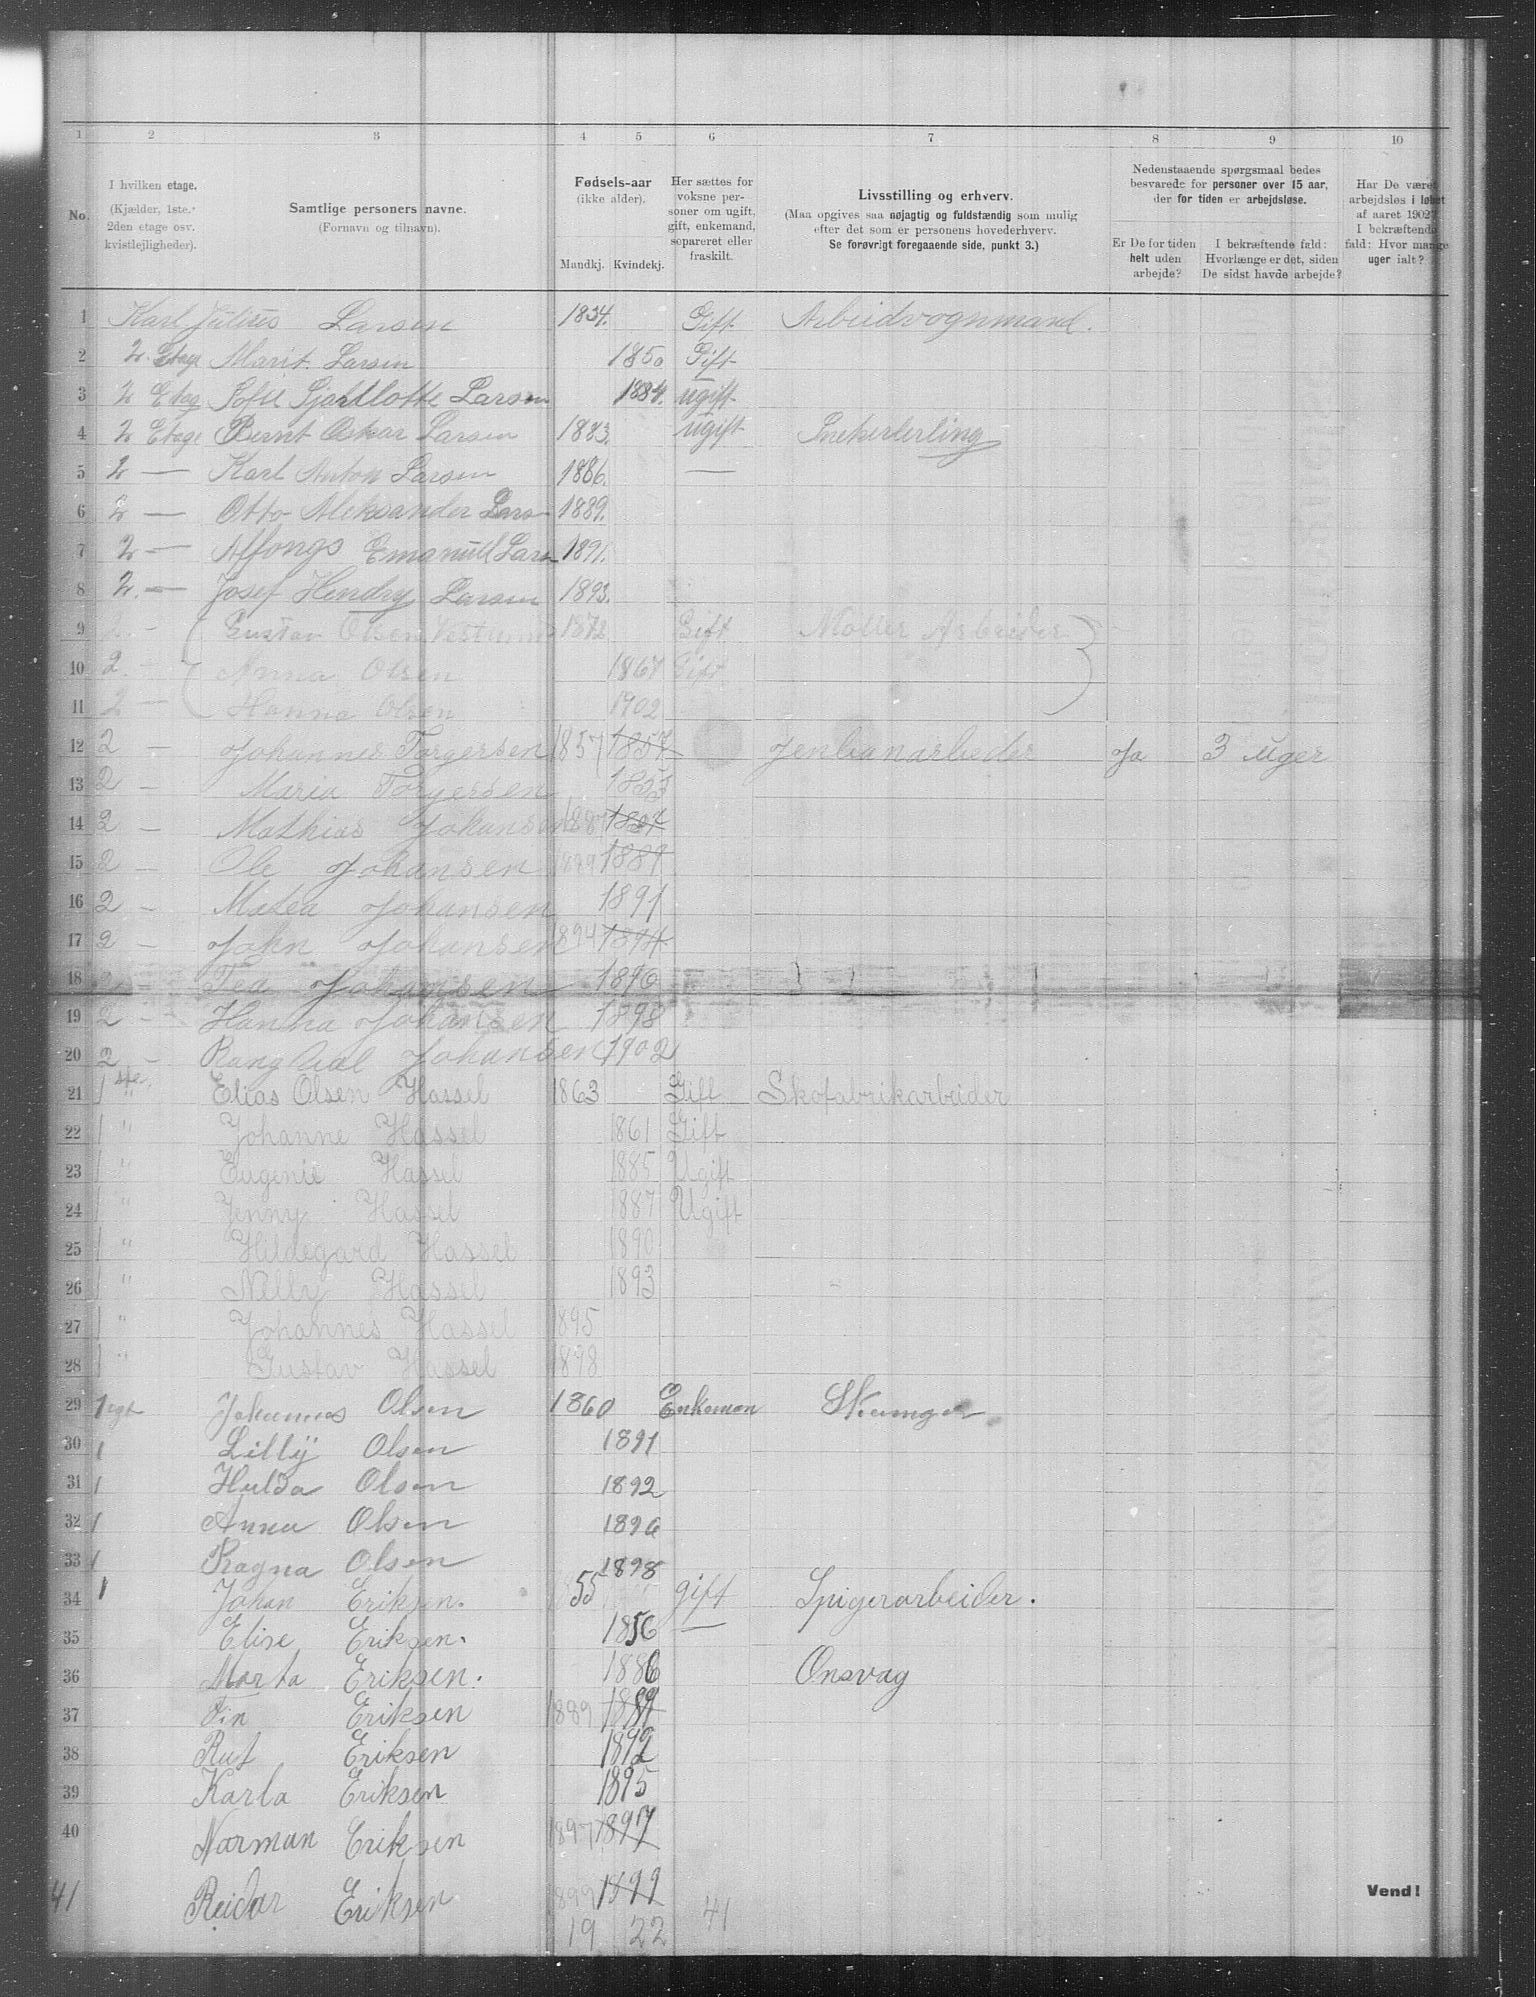 1 2 3 4 5 6 7 8 9 10
No.
I hvilken etage.
(Kjælder, 1ste.
2den etage osv.
kvistlejligheder).
Samtlige personers navne.
(Fornavn og tilnavn).
Fødsels-aar
(ikke alder).
Mandkj. Kvindekj.
Her sættes for
voksne per-
soner om ugift,
gift, enkemand,
sopareret eller
fraskilt.
Livsstilling og erhverv.
(Maa opgives saa nøjagtig og fuldstændig som mulig
efter det som er personens hovederhverv.
Se forøvrigt foregaaende side, punkt 3.)
Nedenstaaende spørgsmaal bedes
besvarede for personer over 15 aar,
der for tiden er arbejdsløse.
Er De for tiden
helt uden
arbejde?
I bekræftende fald:
Hvorlænge er det, siden
De sidst havde arbejde?
Har De været
arbejdsløs i løbet
af aaret 1902?
I bekræftende
fald: Hvor mange
uger ialt?
1 Karl Julius Larsen 1854. Gift Arbeidvognmand.
2 2. Etage Marit Larsen 1850 Gift
3 2 Etag Sofie Sjarllotte Larsen 1884. ugift
4 2 Etage Bernt Oskar Larsen 1883. ugift Snekerlerling
5 2 — Karl Anton Larsen 1886. —
6 2 — Otto Aleksander Lars 1889.
7 2 — Alfongs Emanuel Larsn 1891.
8 2. — Josef Hendry Larsen 1893.
9 2 - Gustav Olsen 1872 Gift Møller Arbeider
10 2 - Anna Olsen 1867 Gift
11 2 - Hanna Olsen 1902
12 2 - Johannes Torgersen 1857 1857 Jenbanarbeder Ja 3 uger
13 2 - Maria Torgersen 1855
14 2 - Mathias Johansen 1887 1887
15 2 - Ole Johansen 1889 1889
16 2 - Matea Johansen 1891
17 2 - John Johansen 1894 1894
18 2 - Tea Johansen 1896
19 2 - Hanna Johansen 1898
20 2 - Rang Johansen 1902
21 1 ste " Elias Olsen Hassel 1863 Gift Skofabrikarbeider
22 1 " Johanne Hassel 1861 Gift
23 1 " Eugenie Hassel 1885 Ugift
24 1 " Jenny Hassel 1887 Ugift
25 1 " Hildegard Hassel 1890
26 1 " Nelly Hassel 1893
27 1 " Johannes Hassel 1895
28 1 " Gustav Hassel 1898
29 1 Johannes Olsen 1860 Enkeman
30 1 Lilly Olsen 1891
31 1 Hulda Olsen 1892
32 1 Anna Olsen 1896
33 1 Ragna Olsen 1898
34 1 Johan Eriksen. 1855 gift Spigerarbeider.
35 Elise Eriksen. 1856 —
36 Marta Eriksen. 1886 Onsvag
37 Fin Eriksen 1889 1889
38 Rut Eriksen 1892
39 Karla Eriksen 1895
40 Norman Eriksen 1897 1897
41 Reidar Eriksen 1899 1899
19 22 41
Vend!